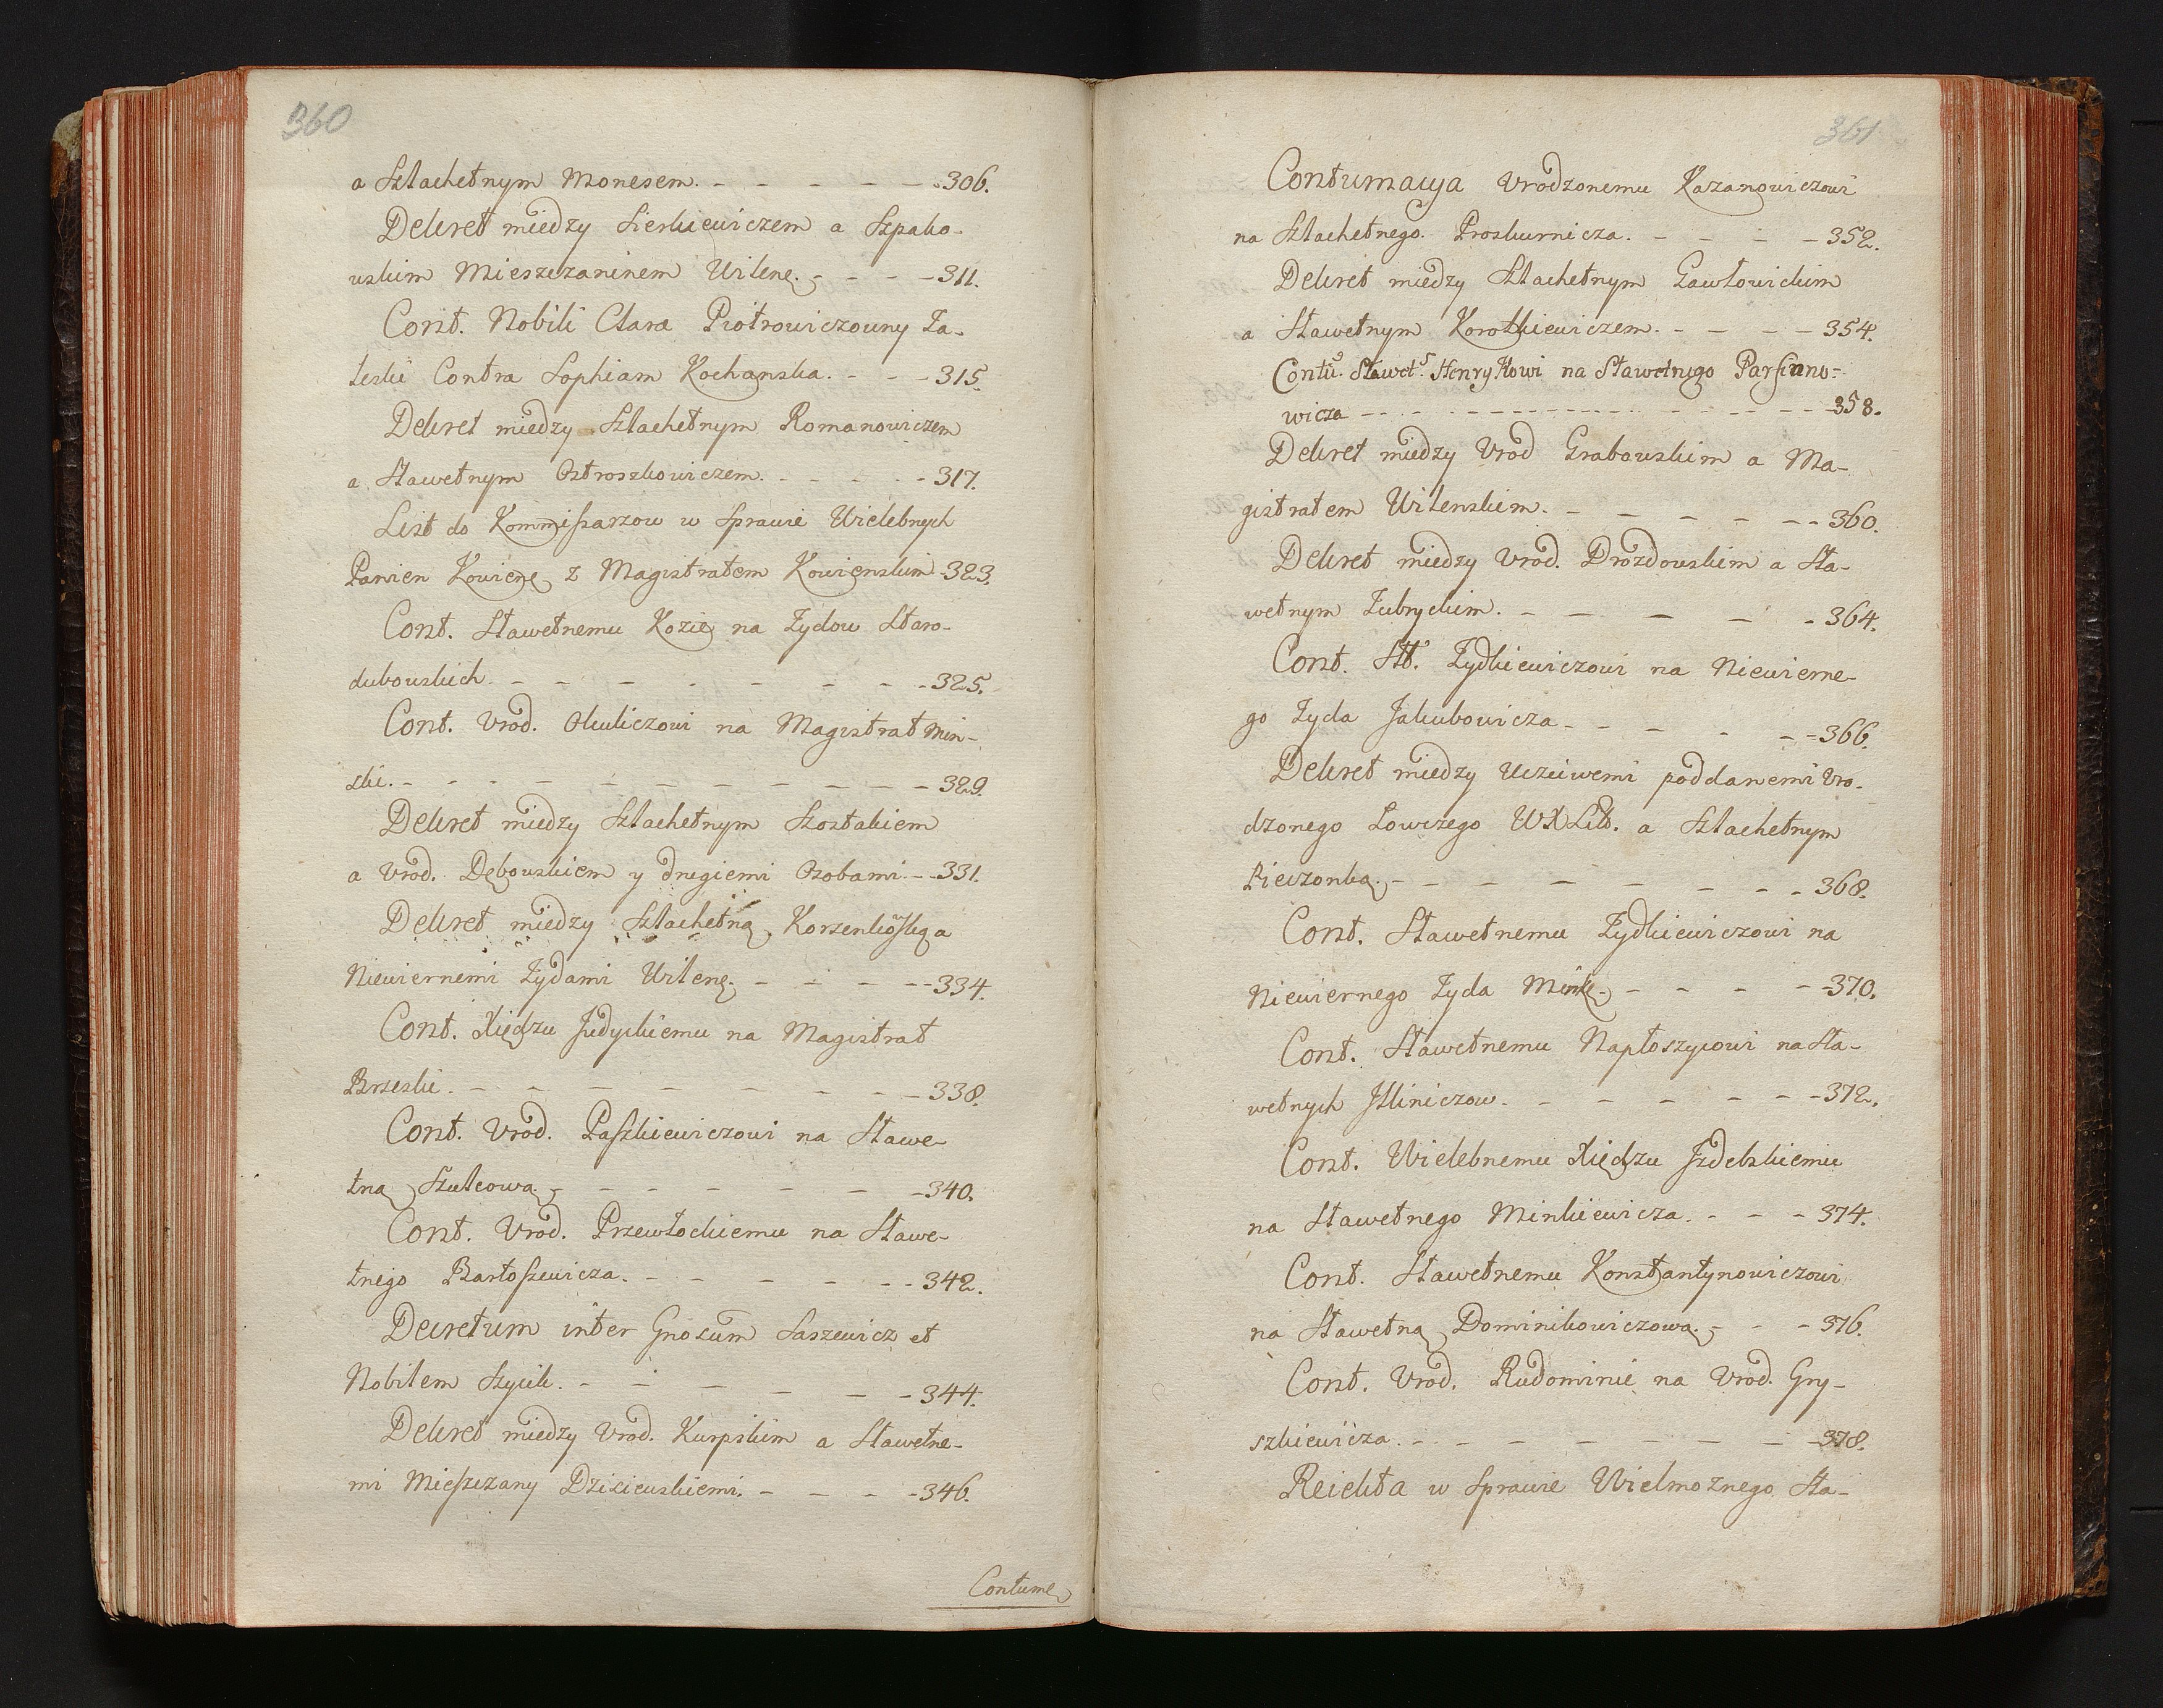 360
a Szlachetnym Monesem. - - - - - 306.
Dekret między Sierkiewiczem a Szpako-
wskim Mieszczaninem Wilenę. - - - 311.
Cont. Nobili Claræ Piotrowiczowny Za-
leski Contra Sophiam Kochanska. - - - 315.
Dekret między Szlachetnym Romanowiczem
a Sławetnym Ostroszkowiczem. - - - - 317.
List do Kommissarzow w Sprawie Wielebnych
Panien Kowienę z Magistratem Kowienskim - 323.
Cont. Sławetnemu Kozie na Zydow Staro-
dubowskich. - - - - - - - - 325.
Cont. Vrod. Okuliczowi na Magistrat Min-
ski. - - - - - - - - - - 329.
Dekret między Szlachetnym Szostakiem
a Vrod. Dębowskiem y drugiemi Osobami. - - 331.
Dekret między Szlachetną Korsenkoską a
Niewiernemi Zydami Wilenę. - - - - - 334.
Cont. Xiędzu Judyckiemu na Magistrat
Brzeski. - - - - - - - - 338.
Cont. Vrod. Paszkiewiczowi na Sławe-
tną Szulcową. - - - - - - - 340.
Cont. Vrod. Przewłockiemu na Sławe-
tnego Bartoszewicza. - - - - - - 342.
Decretum inter Gnosum Saszewicz et
Nobilem Szycik. - - - - - - 344.
Dekret między Vrod. Kurpskim a Sławetne-
mi Mieszczany Dzisienskiemi. - - - - 346.
Contume
361
Contumacya Vrodzonemu Kazanowiczowi
na Szlachetnego Proskurnicza. - - - - 352.
Dekret między Szlachetnym Gawłowickim
a Sławetnym Korotkiewiczem. - - - - 354.
Contu. Sławet. Henrykowi na Sławetnego Parfiano-
wicza - - - - - - - - - 358.
Dekret między Vrod Grabowskim a Ma-
gistratem Wilenskim. - - - - - - 360.
Dekret między Vrod. Drozdowskim a Sła-
wetnym Zubryckim. - - - - - 364.
Cont. Slt. Zydkiewiczowi na Niewierne-
go Zyda Jakubowicza - - - - - - 366.
Dekret między Uczciwemi poddanemi Vro-
dzonego Łowczego WXLitt. a Szlachetnym
Pieczonką. - - - - - - - - 368.
Cont. Sławetnemu Zydkiewiczowi na
Niewiernego Zyda Minkę. - - - - - 370.
Cont. Sławetnemu Naptoszycowi na Sła-
wetnych Jlliniczow. - - - - - - 372.
Cont. Wielebnemu Xiędzu Jzdebskiemu
na Sławetnego Minkiewicza. - - - 374.
Cont. Sławetnemu Konstantynowiczowi
na Sławetną Dominikowiczową. - - - 376.
Cont. Vrod. Rudominie na Vrod. Gry-
szkiewicza. - - - - - - - - 378.
Reiekta w Sprawie Wielmoznego Sta-